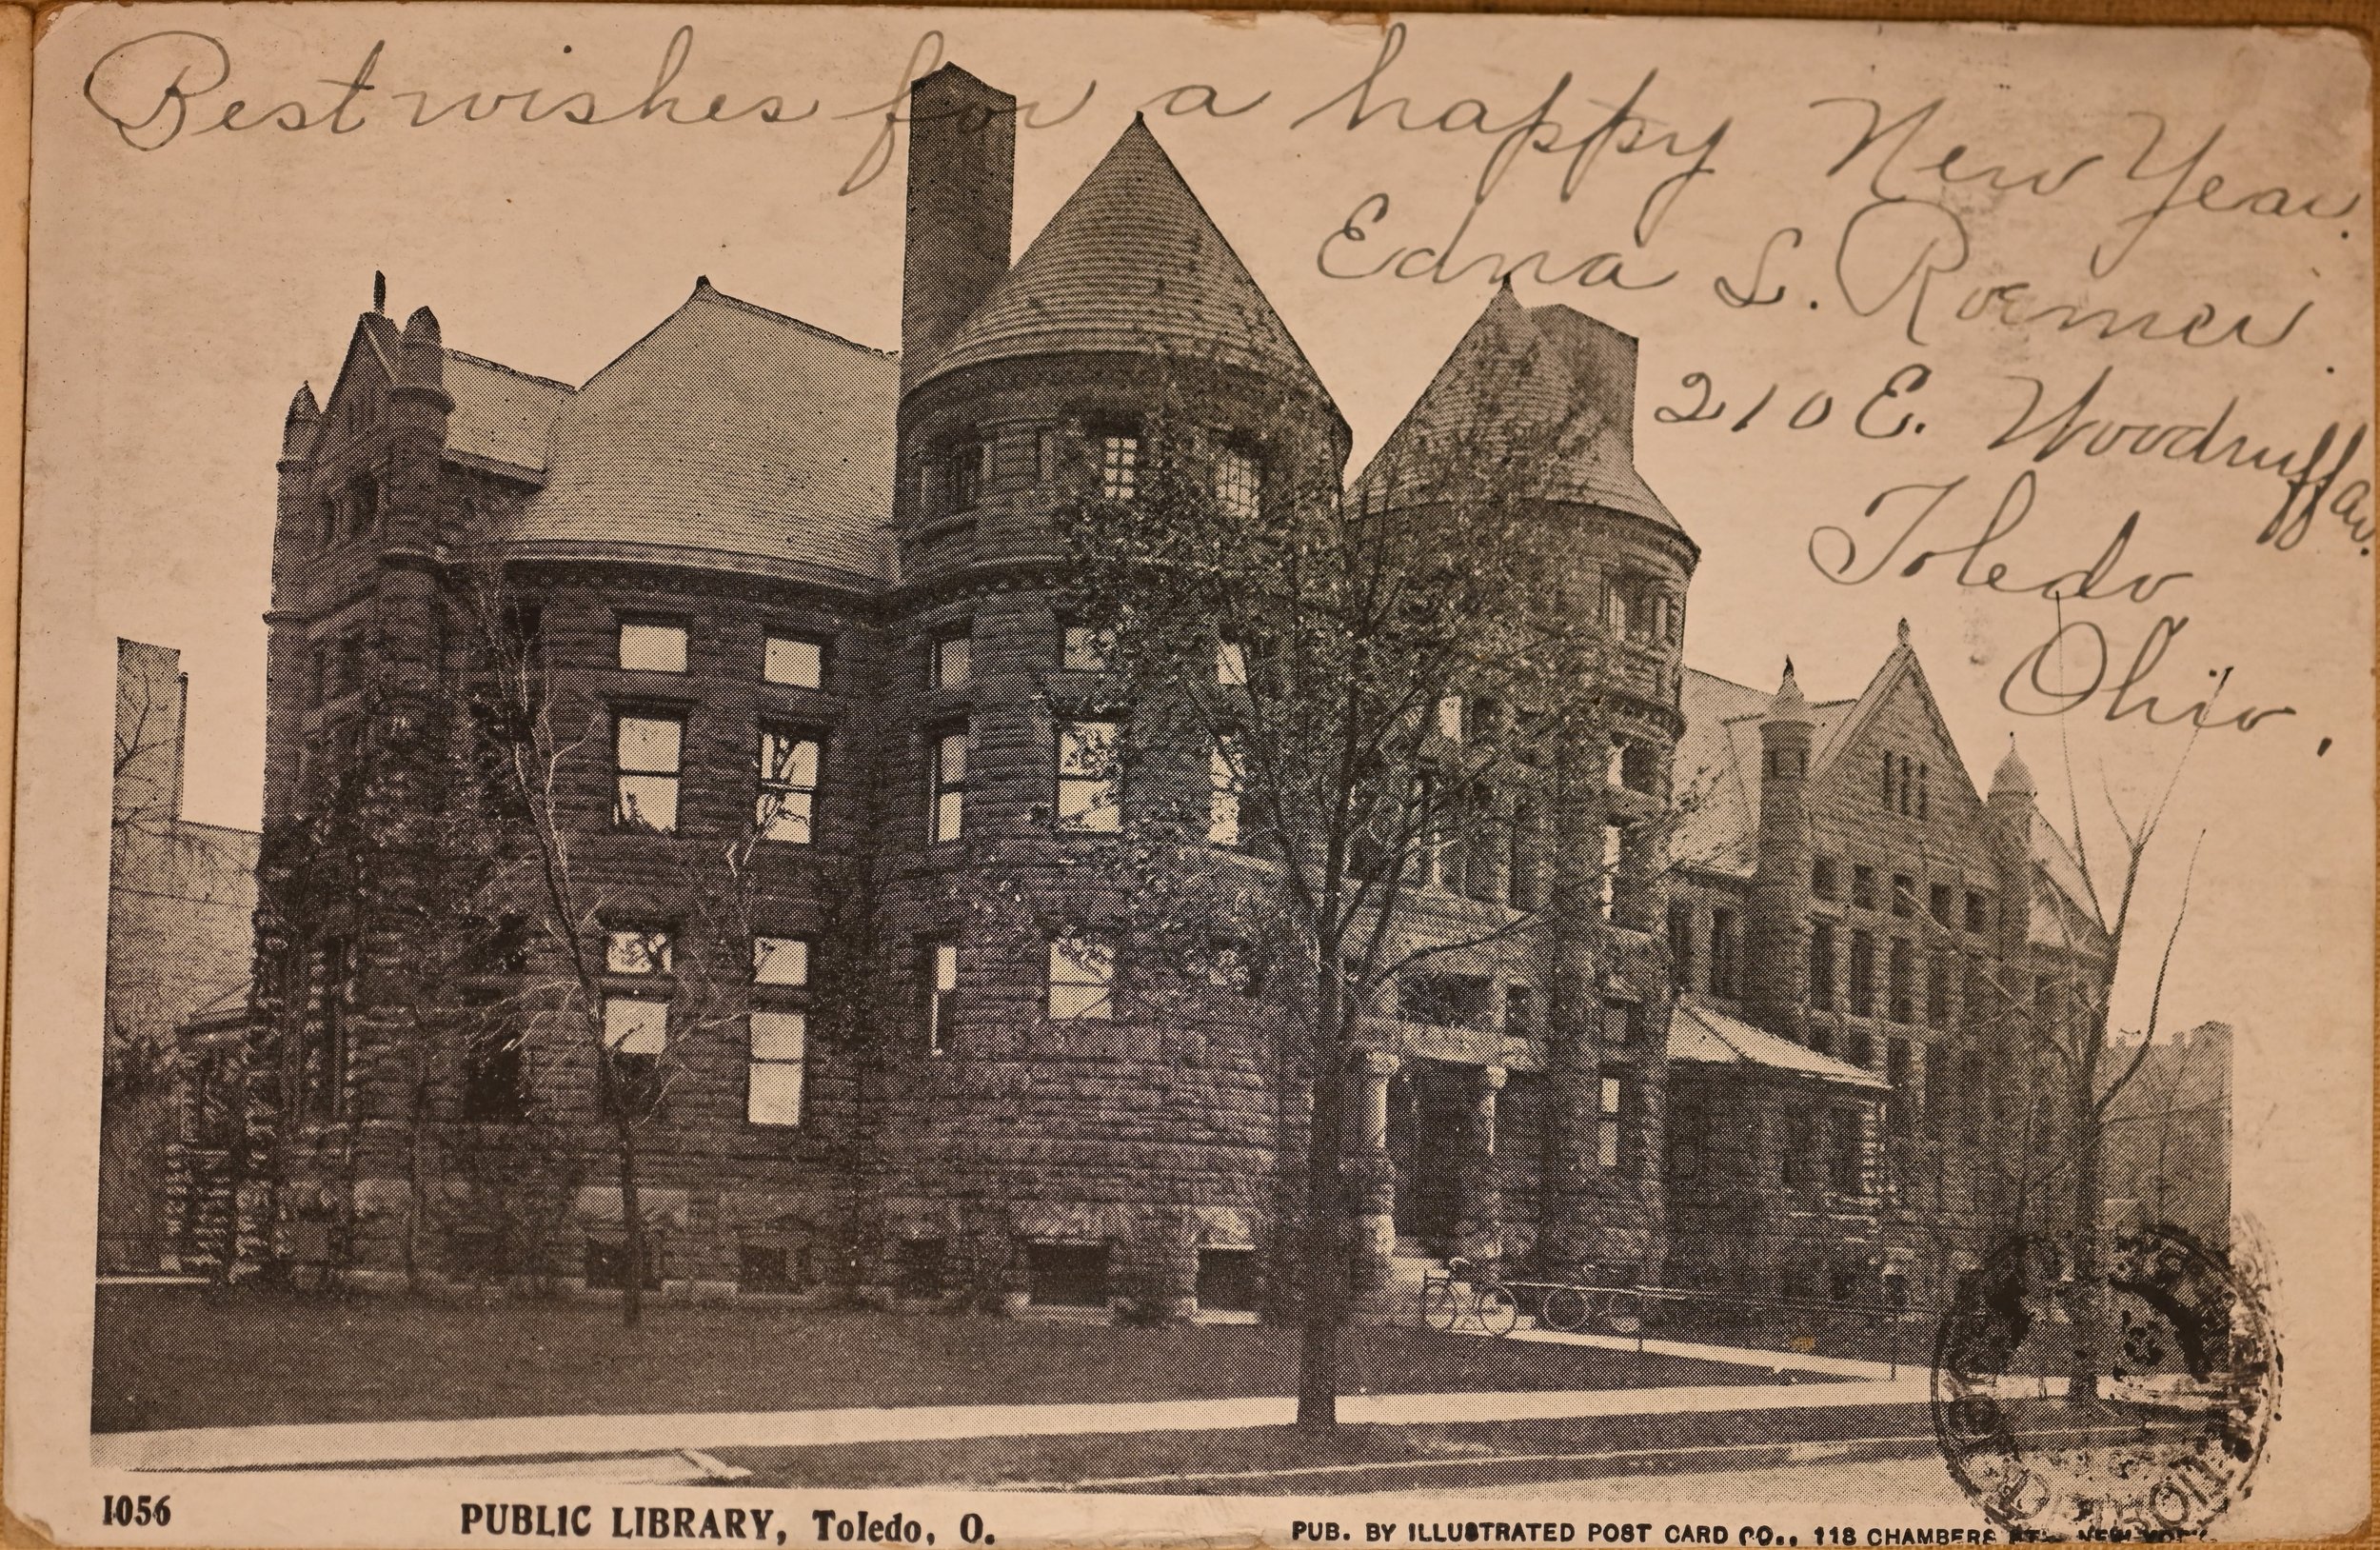 Best wishes for a happy New Year.
Edna L. Roemer.
210 E. Woodruff av.
Toledo
Ohio.
DETROIT
1056
PUBLIC LIBRARY, Toledo, O.
PUB. BY ILLUSTRATED POST CARD CO., 118 CHAMBERS ST., NEW YORK.